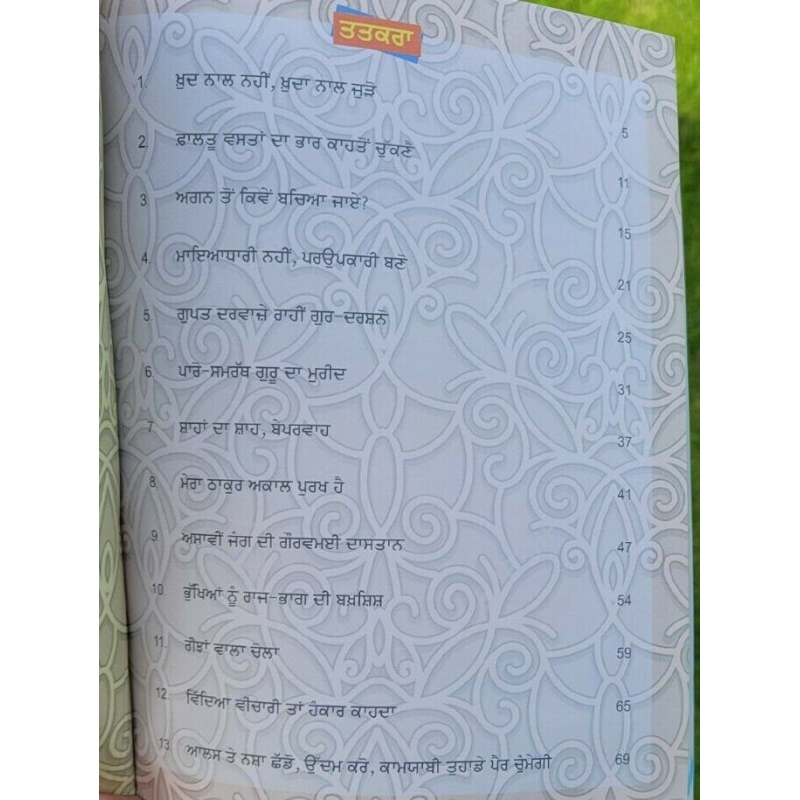 ਤਤਕਰਾ
1. ਖ਼ੁਦ ਨਾਲ ਨਹੀਂ, ਖ਼ੁਦਾ ਨਾਲ ਜੁੜੋ 5
2. ਫ਼ਾਲਤੂ ਵਸਤਾਂ ਦਾ ਭਾਰ ਕਾਹਤੋਂ ਚੁੱਕਣੈ 11
3. ਅਗਨ ਤੋਂ ਕਿਵੇਂ ਬਚਿਆ ਜਾਏ? 15
4. ਮਾਇਆਧਾਰੀ ਨਹੀਂ, ਪਰਉਪਕਾਰੀ ਬਣੋ 21
5. ਗੁਪਤ ਦਰਵਾਜ਼ੇ ਰਾਹੀਂ ਗੁਰ-ਦਰਸ਼ਨੋ 25
6. ਪਾਰੋ-ਸਮਰੱਥ ਗੁਰੂ ਦਾ ਮੁਰੀਦ 31
7. ਸ਼ਾਹਾਂ ਦਾ ਸ਼ਾਹ, ਬੇਪਰਵਾਹ 37
8. ਮੇਰਾ ਠਾਕੁਰ ਅਕਾਲ ਪੁਰਖ ਹੈ 41
9. ਅਸਾਵੀਂ ਜੰਗ ਦੀ ਗੌਰਵਮਈ ਦਾਸਤਾਨ 47
10. ਭੁੱਖਿਆਂ ਨੂੰ ਰਾਜ-ਭਾਗ ਦੀ ਬਖ਼ਸ਼ਿਸ਼ 54
11. ਰੀਝਾਂ ਵਾਲਾ ਚੋਲਾ 59
12. ਵਿੱਦਿਆ ਵੀਚਾਰੀ ਤਾਂ ਹੰਕਾਰ ਕਾਹਦਾ 65
13. ਆਲਸ ਤੇ ਨਸ਼ਾ ਛੱਡੋ, ਉੱਦਮ ਕਰੋ, ਕਾਮਯਾਬੀ ਤੁਹਾਡੇ ਪੈਰ ਚੁੰਮੇਗੀ 69